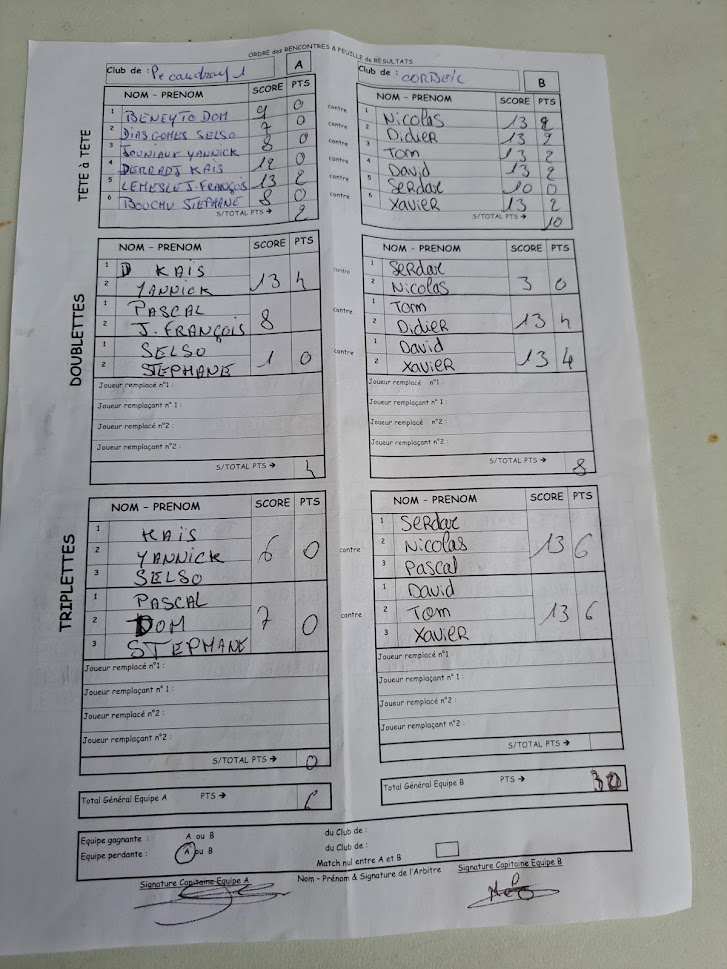 ORDRE des RENCONTRES & FEUILLE de RESULTATS
Club de : A
Club de : B
TETE à TETE
NOM - PRENOM SCORE PTS
1 BENEYTO DOM 9 0
2 DIAS GOMES SELSO 7 0
3 JOUNIAUX YANNICK 8 0
4 DERRADJ KAIS 12 0
5 LEMESLE J. FRANÇOIS 13 2
6 BOUCHU STEPHANE 8 0
S/TOTAL PTS → 2
contre
contre
contre
contre
contre
contre
NOM - PRENOM SCORE PTS
1 Nicolas 13 2
2 Didier 13 2
3 Tom 13 2
4 David 13 2
5 Serdar 10 0
6 Xavier 13 2
S/TOTAL PTS → 10
DOUBLETTES
NOM - PRENOM SCORE PTS
1 D KAIS
2 YANNICK 13 4
1 PASCAL
2 J. FRANÇOIS 8
1 SELSO
2 STEPHANE 1 0
Joueur remplacé n°1 :
Joueur remplaçant n° 1 :
Joueur remplacé n°2 :
Joueur remplaçant n°2 :
S/TOTAL PTS → 4
contre
contre
contre
NOM - PRENOM SCORE PTS
1 Serdar
2 Nicolas 3 0
1 Tom
2 Didier 13 4
1 David
2 Xavier 13 4
Joueur remplacé n°1 :
Joueur remplaçant n° 1 :
Joueur remplacé n°2 :
Joueur remplaçant n°2 :
S/TOTAL PTS → 8
TRIPLETTES
NOM - PRENOM SCORE PTS
1 KAIS
2 YANNICK 6 0
3 SELSO
1 PASCAL
2 DOM 7 0
3 STEPHANE
Joueur remplacé n°1 :
Joueur remplaçant n° 1 :
Joueur remplacé n°2 :
Joueur remplaçant n°2 :
S/TOTAL PTS → 0
contre
contre
NOM - PRENOM SCORE PTS
1 Serdar
2 Nicolas 13 6
3 Pascal
1 David
2 Tom 13 6
3 Xavier
Joueur remplacé n°1 :
Joueur remplaçant n° 1 :
Joueur remplacé n°2 :
Joueur remplaçant n°2 :
S/TOTAL PTS →
Total Général Equipe A PTS → 6
Total Général Equipe B PTS → 30
Equipe gagnante : A ou B du Club de :
Equipe perdante : A ou B du Club de :
Match nul entre A et B
Signature Capitaine Equipe A
Nom - Prénom & Signature de l'Arbitre
Signature Capitaine Equipe B